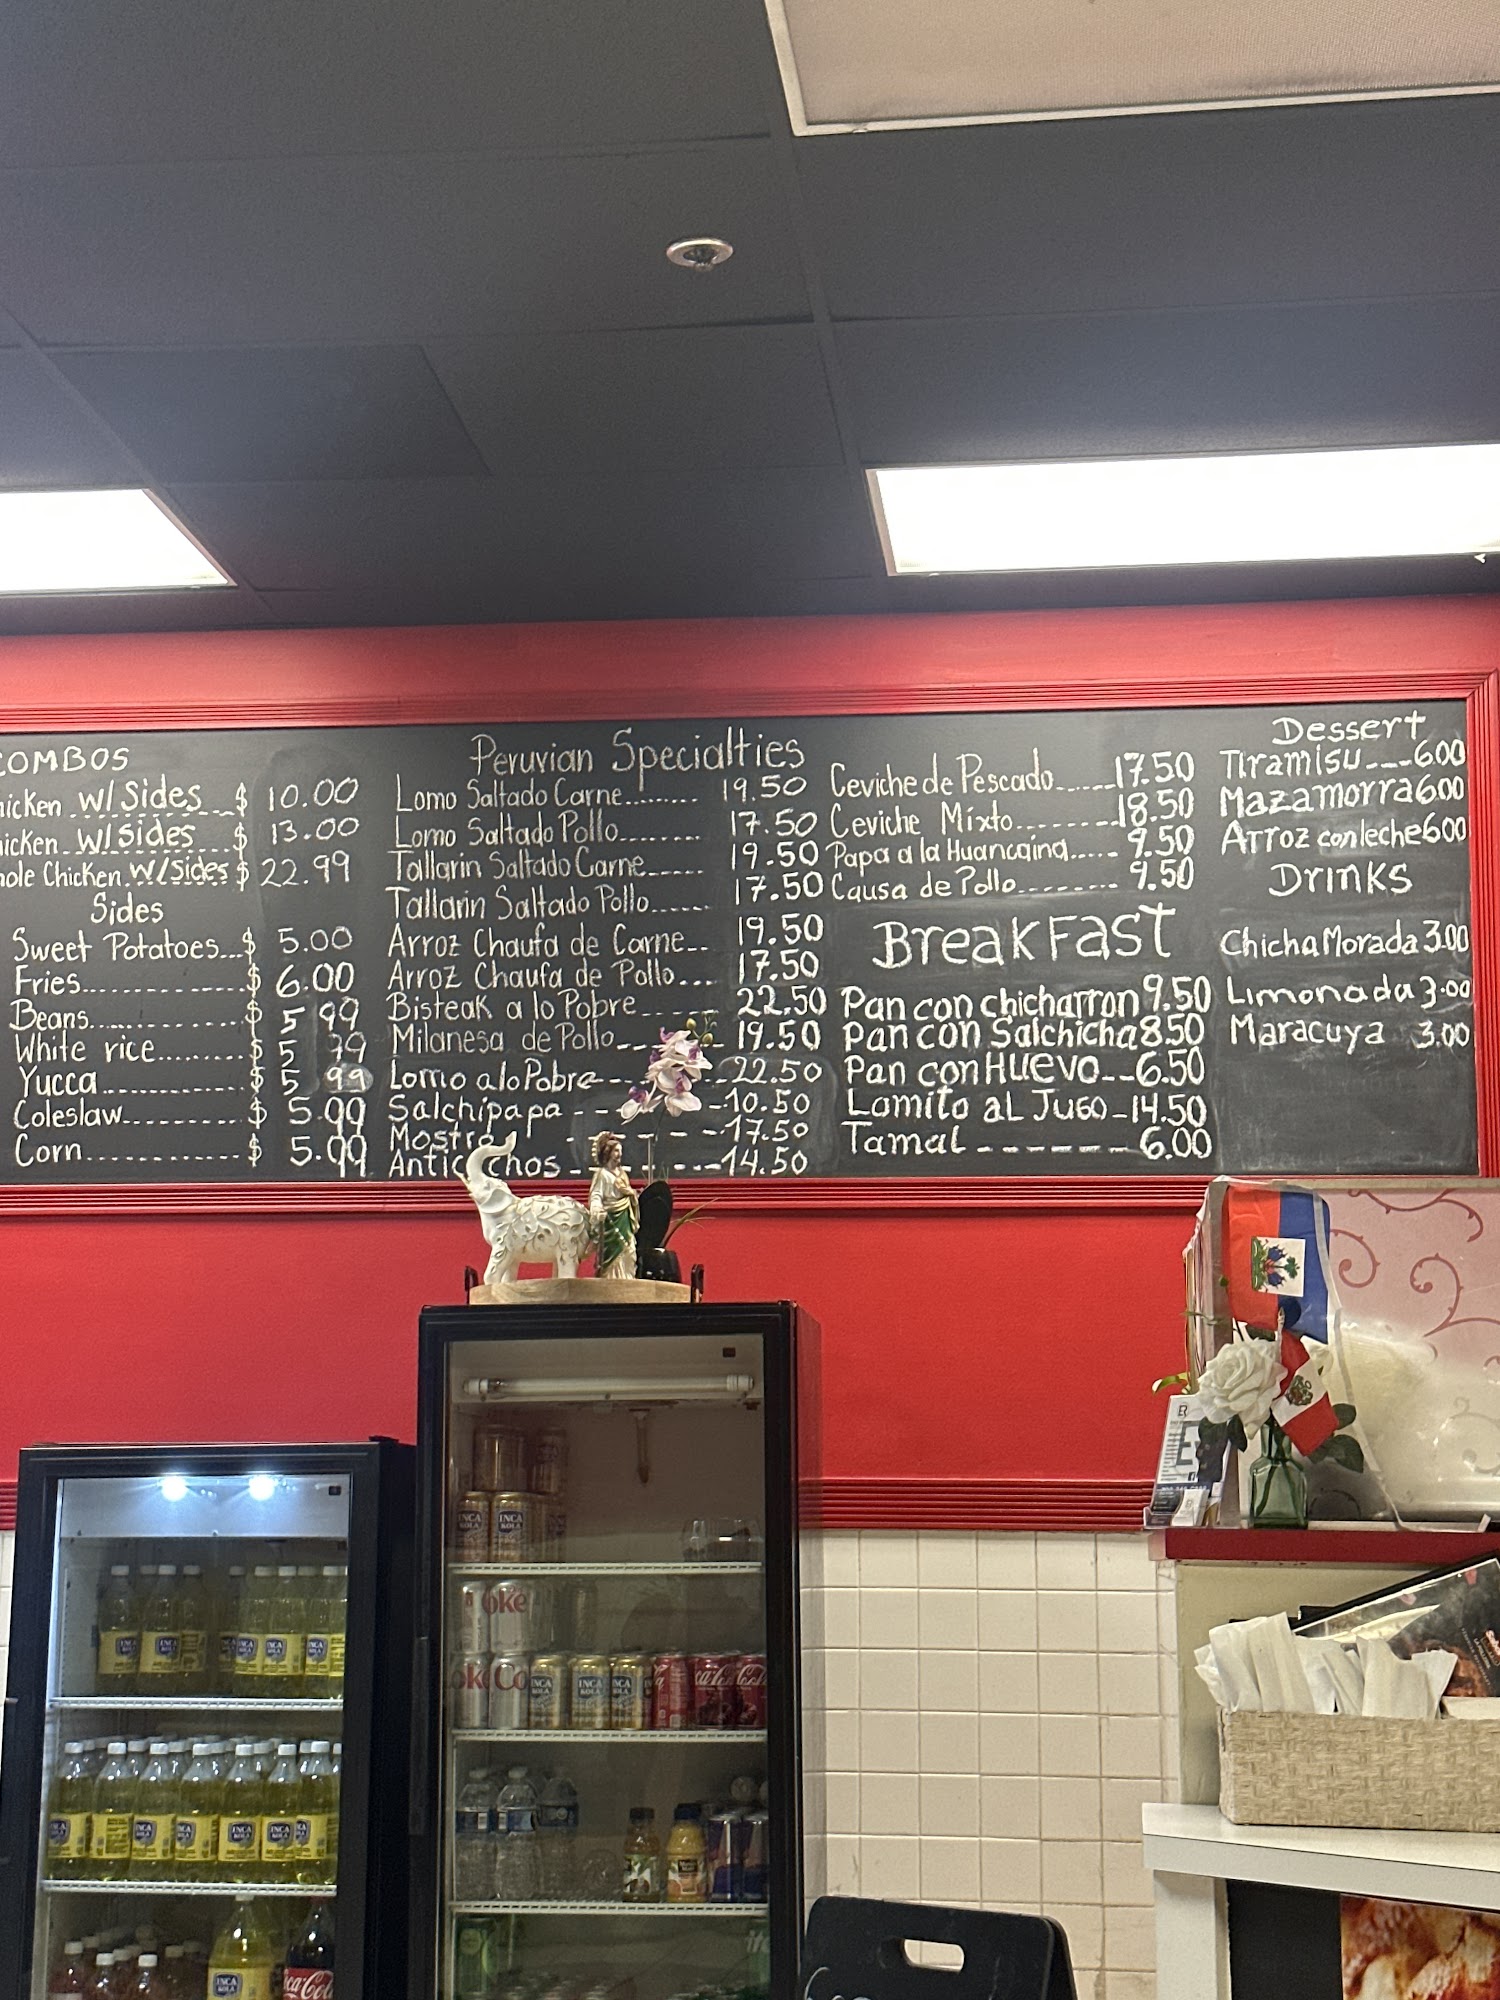 COMBOS
w/Sides $ 10.00
w/Sides $ 13.00
Chicken w/Sides $ 22.99
Sides
Sweet Potatoes...$ 5.00
Fries...$ 6.00
Beans...$ 5 99
White rice...$ 5 99
Yucca...$ 5 99
Coleslaw...$ 5.99
Corn...$ 5.99
Peruvian Specialties
Lomo Saltado Carne...19.50
Lomo Saltado Pollo...17.50
Tallarin Saltado Carne...19.50
Tallarin Saltado Pollo...17.50
Arroz Chaufa de Carne..19.50
Arroz Chaufa de Pollo...17.50
Bisteak a lo Pobre...22.50
Milanesa de Pollo...19.50
Lomo a lo Pobre...22.50
Salchipapa...10.50
Mostro...17.50
14.50
Ceviche de Pescado...17.50
Ceviche Mixto...18.50
Papa a la Huancaina...9.50
Causa de Pollo...9.50
BreakFast
Pan con chicharron 9.50
Pan con Salchicha 8.50
Pan con Huevo--6.50
Lomito al Jugo-14.50
Tamal ------ 6.00
Dessert
Tiramisu---6.00
Mazamorra 6.00
Arroz con leche 6.00
Drinks
Chicha Morada 3.00
Limonada 3.00
Maracuya 3.00
INCA KOLA
INCA KOLA
Coke
Coke
INCA KOLA
INCA KOLA
INCA KOLA
Coca-Cola
INCA KOLA
INCA KOLA
INCA KOLA
INCA KOLA
Coca-Cola